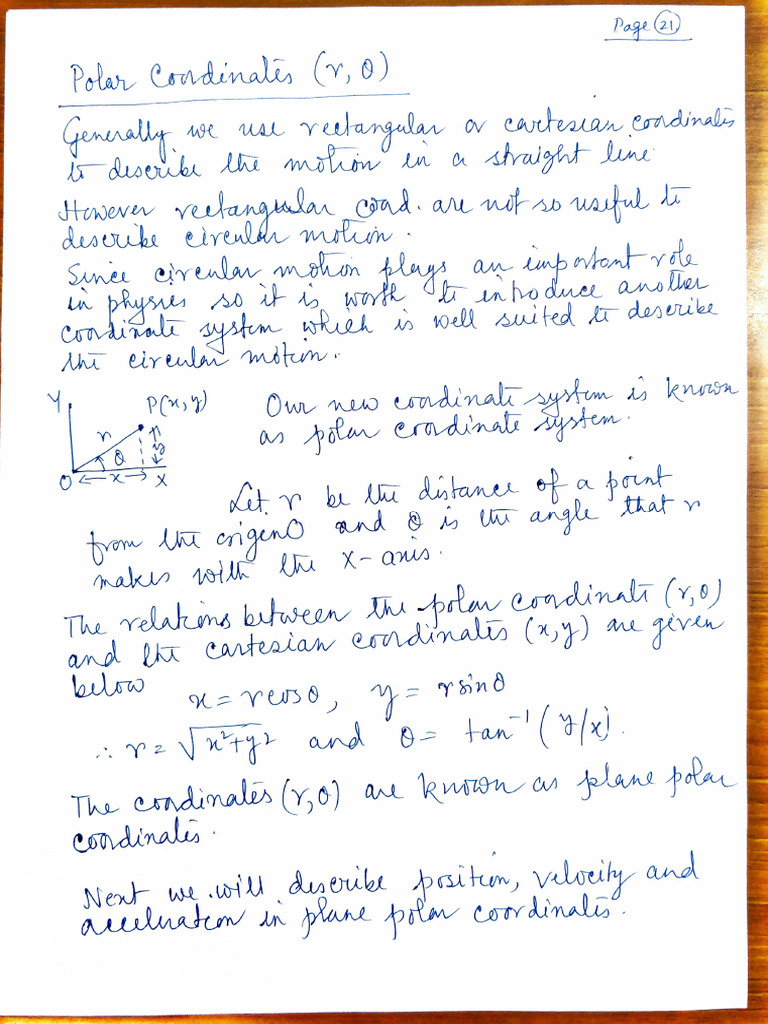 Page 21
Polar Coordinates (r, θ)
Generally we use rectangular or cartesian coordinates
to describe the motion in a straight line
However rectangular coord. are not so useful to
describe circular motion.
Since circular motion plays an important role
in physics so it is worth to introduce another
coordinate system which is well suited to describe
the circular motion.
Y P(x,y)
r θ y
O x X
Our new coordinate system is known
as polar coordinate system.
Let r be the distance of a point
from the origen O and θ is the angle that r
makes with the x-axis.
The relations between the polar coordinate (r,θ)
and the cartesian coordinates (x,y) are given
below
x = r cosθ, y = r sinθ
∴ r = √x²+y² and θ = tan⁻¹(y/x).
The coordinates (r,θ) are known as plane polar
coordinates.
Next we will describe position, velocity and
acceleration in plane polar coordinates.